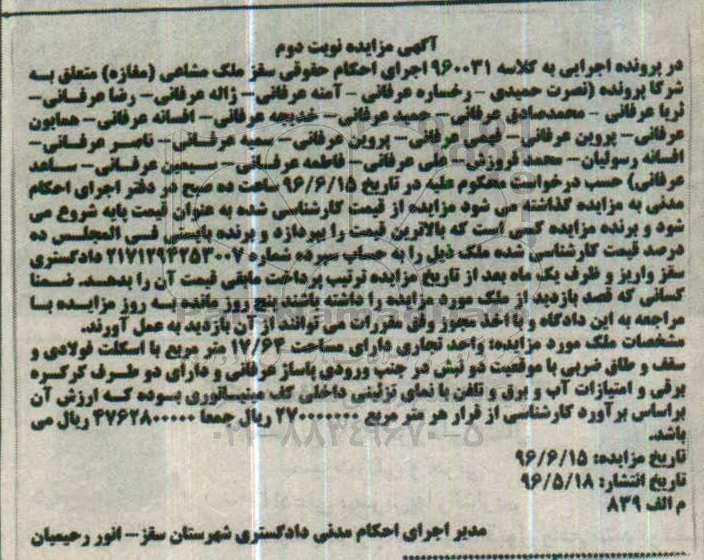 آگهی مزایده نوبت دوم
در پرونده اجرایی به کلاسه ۹۶۰۰۳۱ اجرای احکام حقوقی سقز ملک مشاعی (مغازه) متعلق به
شرکا پرونده (نصرت حمیدی - رخساره عرفانی - آمنه عرفانی - ژاله عرفانی - رضا عرفانی-
ثریا عرفانی - محمدصادق عرفانی - حمید عرفانی - خدیجه عرفانی - افسانه عرفانی - همایون
عرفانی - پروین عرفانی - فهمی عرفانی - پروین عرفانی - سمیه عرفانی - ناصر عرفانی -
افسانه رسولیان - محمد فروزش - علی عرفانی - فاطمه عرفانی - سیمین عرفانی - ساعد
عرفانی) حسب درخواست محکوم علیه در تاریخ ۹۶/۶/۱۵ ساعت ده صبح در دفتر اجرای احکام
مدنی به مزایده گذاشته می شود مزایده از قیمت کارشناسی شده به عنوان قیمت پایه شروع می
شود و برنده مزایده کسی است که بالاترین قیمت را بپردازد و برنده بایستی فی المجلس ده
درصد قیمت کارشناسی شده ملک ذیل را به حساب سپرده شماره ۲۱۷۱۲۹۴۲۵۳۰۰۷ دادگستری
سقز واریز و ظرف یک ماه بعد از تاریخ مزایده ترتیب پرداخت مابقی قیمت آن را بدهد. ضمنا
کسانی که قصد بازدید از ملک مورد مزایده را داشته باشند پنج روز مانده به روز مزایده با
مراجعه به این دادگاه و با اخذ مجوز وفق مقررات می توانند از آن بازدید به عمل آورند.
مشخصات ملک مورد مزایده: واحد تجاری دارای مساحت ۱۷/۶۴ متر مربع با اسکلت فولادی و
سقف و طاق ضربی با موقعیت دو نبش در جنب ورودی پاساژ عرفانی و دارای دو طرف کرکره
برقی و امتیازات آب و برق و تلفن با نمای تزئینی داخلی کف مینیاتوری بوده که ارزش آن
براساس برآورد کارشناسی از قرار هر متر مربع ۲۷۰۰۰۰۰۰۰ ریال جمعا ۴۷۶۲۸۰۰۰۰۰ ریال می
باشد.
تاریخ مزایده: ۹۶/۶/۱۵
تاریخ انتشار: ۹۶/۵/۱۸
م الف ۸۳۹
مدیر اجرای احکام مدنی دادگستری شهرستان سقز - انور رحیمیان